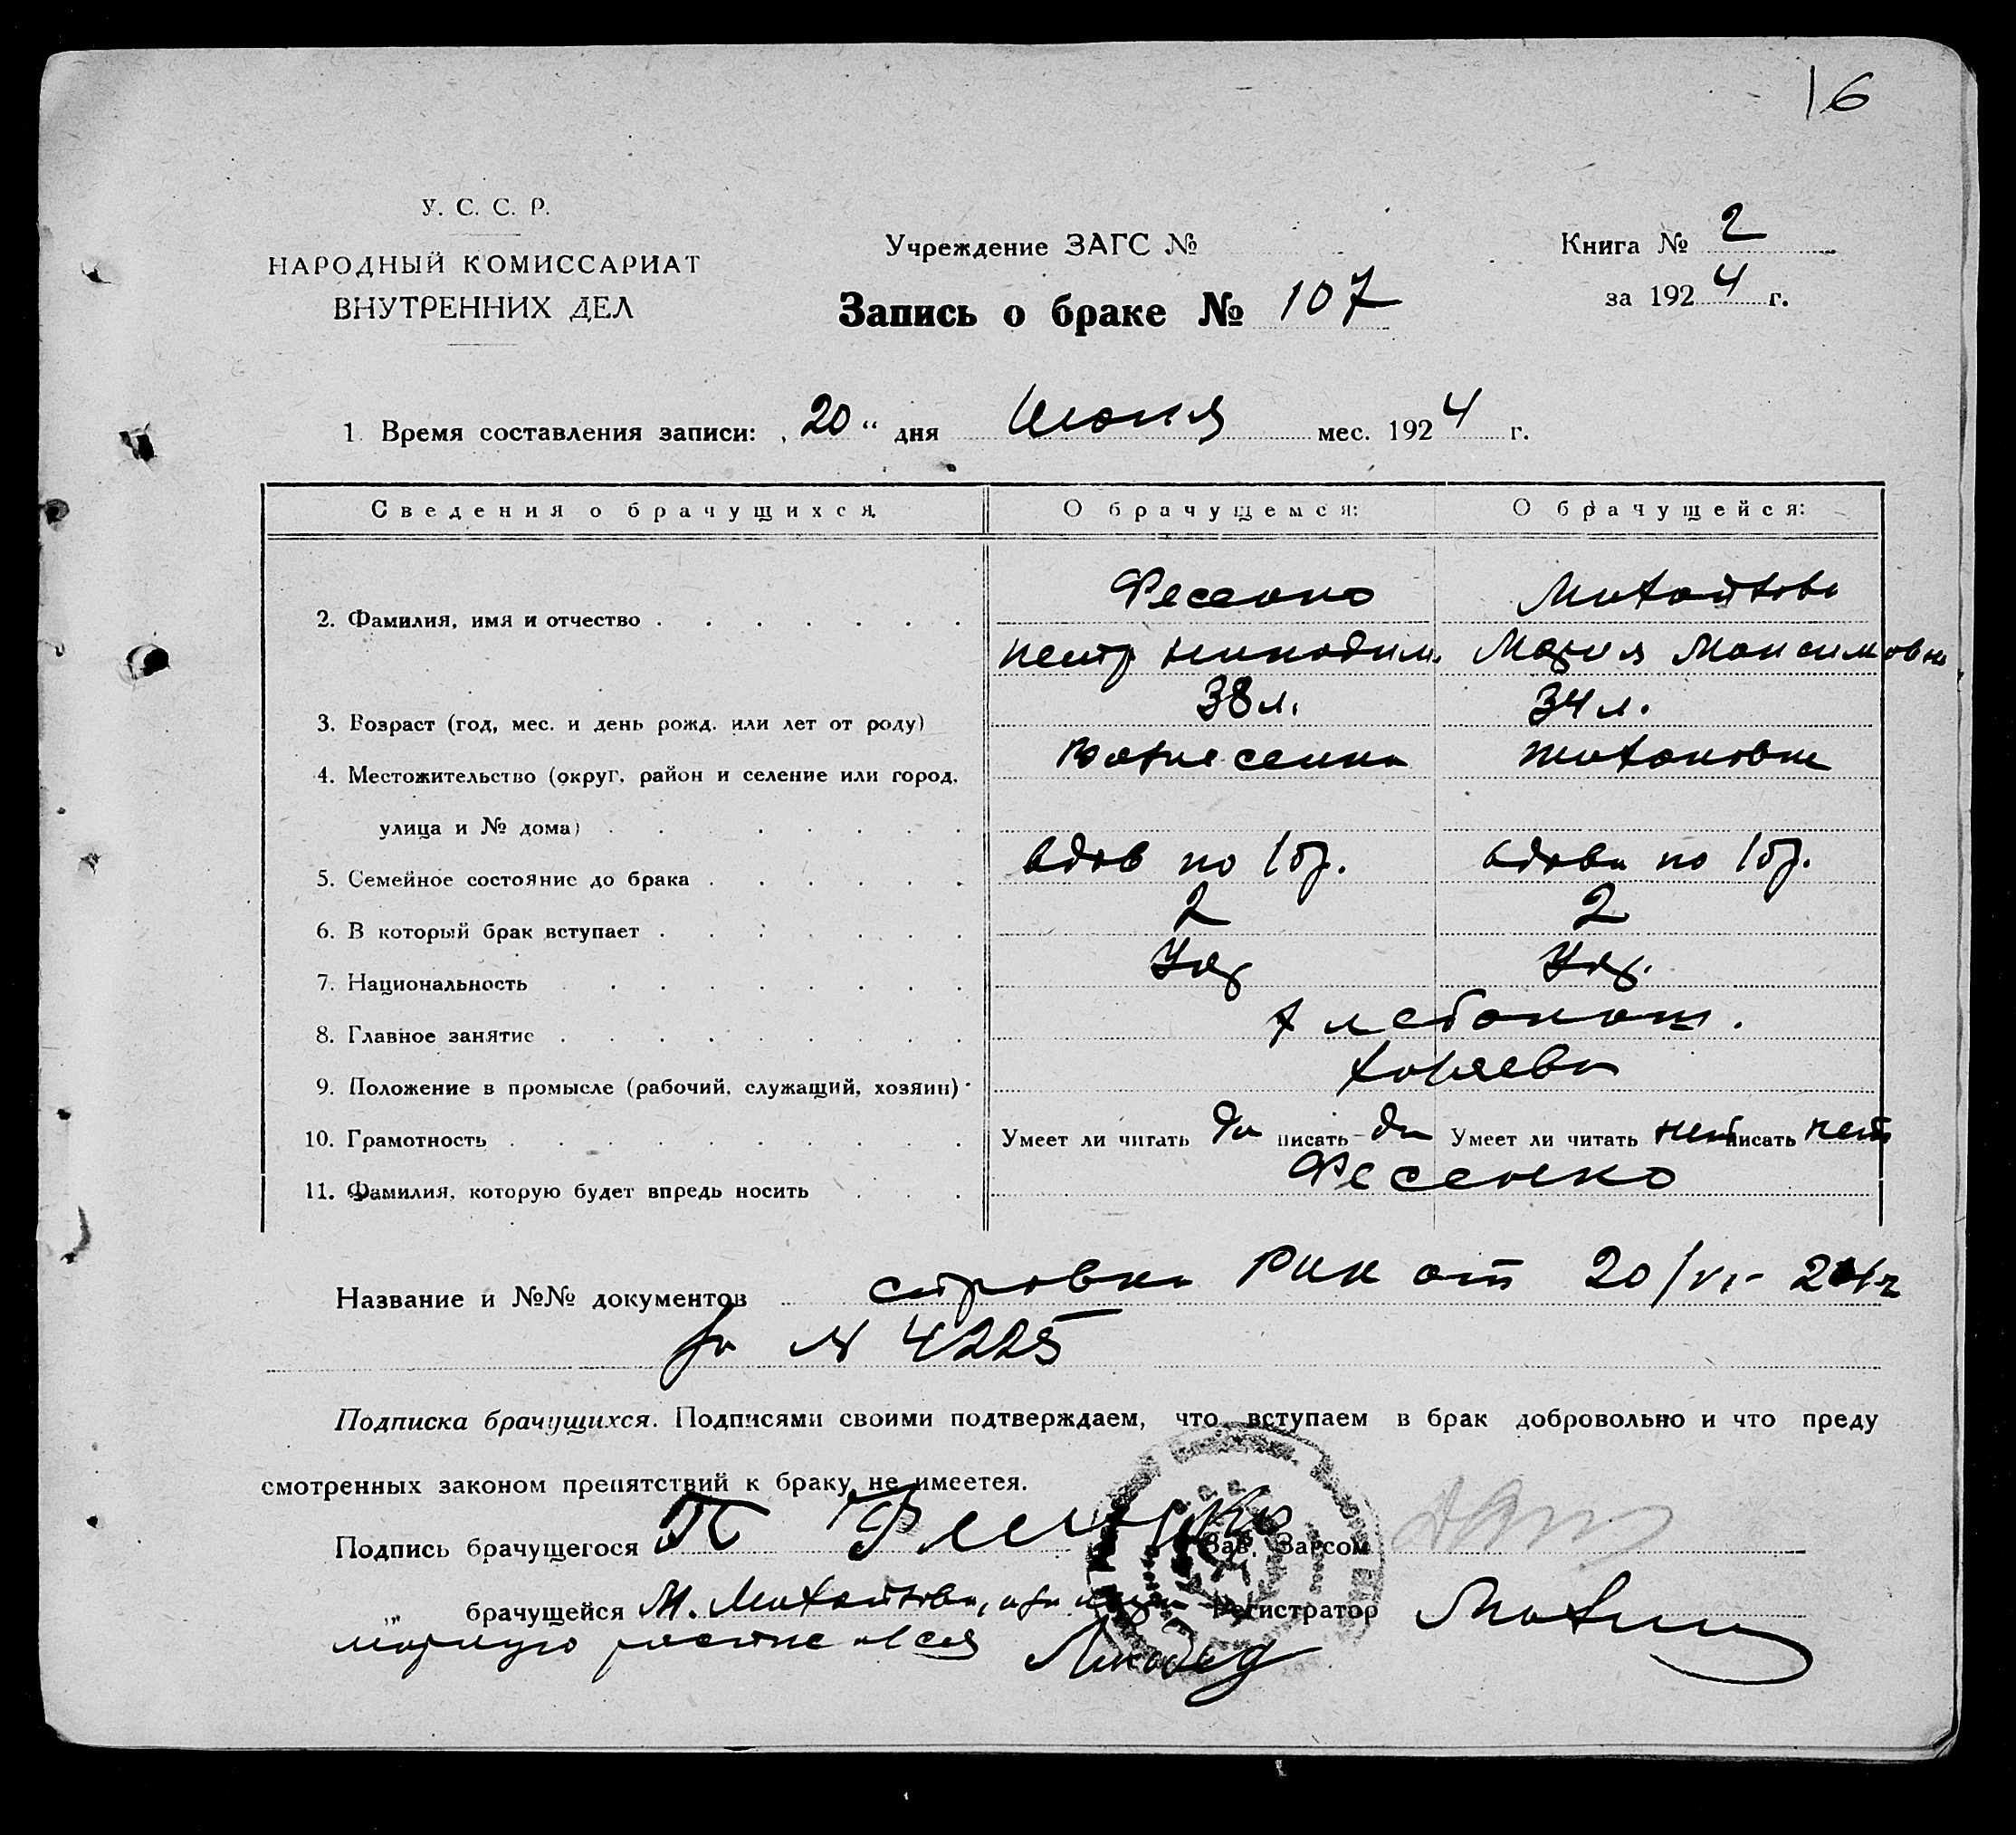 16
У. С. С. Р.
НАРОДНЫЙ КОМИССАРИАТ
ВНУТРЕННИХ ДЕЛ
Учреждение ЗАГС №
Запись о браке № 107
Книга № 2
за 1924 г.
1. Время составления записи: „20“ дня Июня мес. 1924 г.
Сведения о брачущихся. О брачущемся: О брачущейся:
Фесенко
2. Фамилия, имя и отчество
Петр Никодим. Мария Максимовна
3. Возраст (год, мес. и день рожд. или лет от роду) 38 л. 34 л.
4. Местожительство (округ, район и селение или город, Вознесенка
улица и № дома)
5. Семейное состояние до брака вдов по 1 бр. вдова по 1 бр.
6. В который брак вступает 2 2
7. Национальность Укр Укр.
8. Главное занятие хлебопаш.
9. Положение в промысле (рабочий, служащий, хозяин) хозяева
10. Грамотность Умеет ли читать да писать да Умеет ли читать нет писать нет
11. Фамилия, которую будет впредь носить Фесенко
Название и №№ документов справка РИК от 20/VI - 24 г
за № 4225
Подписка брачущихся. Подписями своими подтверждаем, что вступаем в брак добровольно и что преду
смотренных законом препятствий к браку не имеется.
Подпись брачущегося П Фесенко Зав. Загсом
„ брачущейся М. Регистратор
расписался